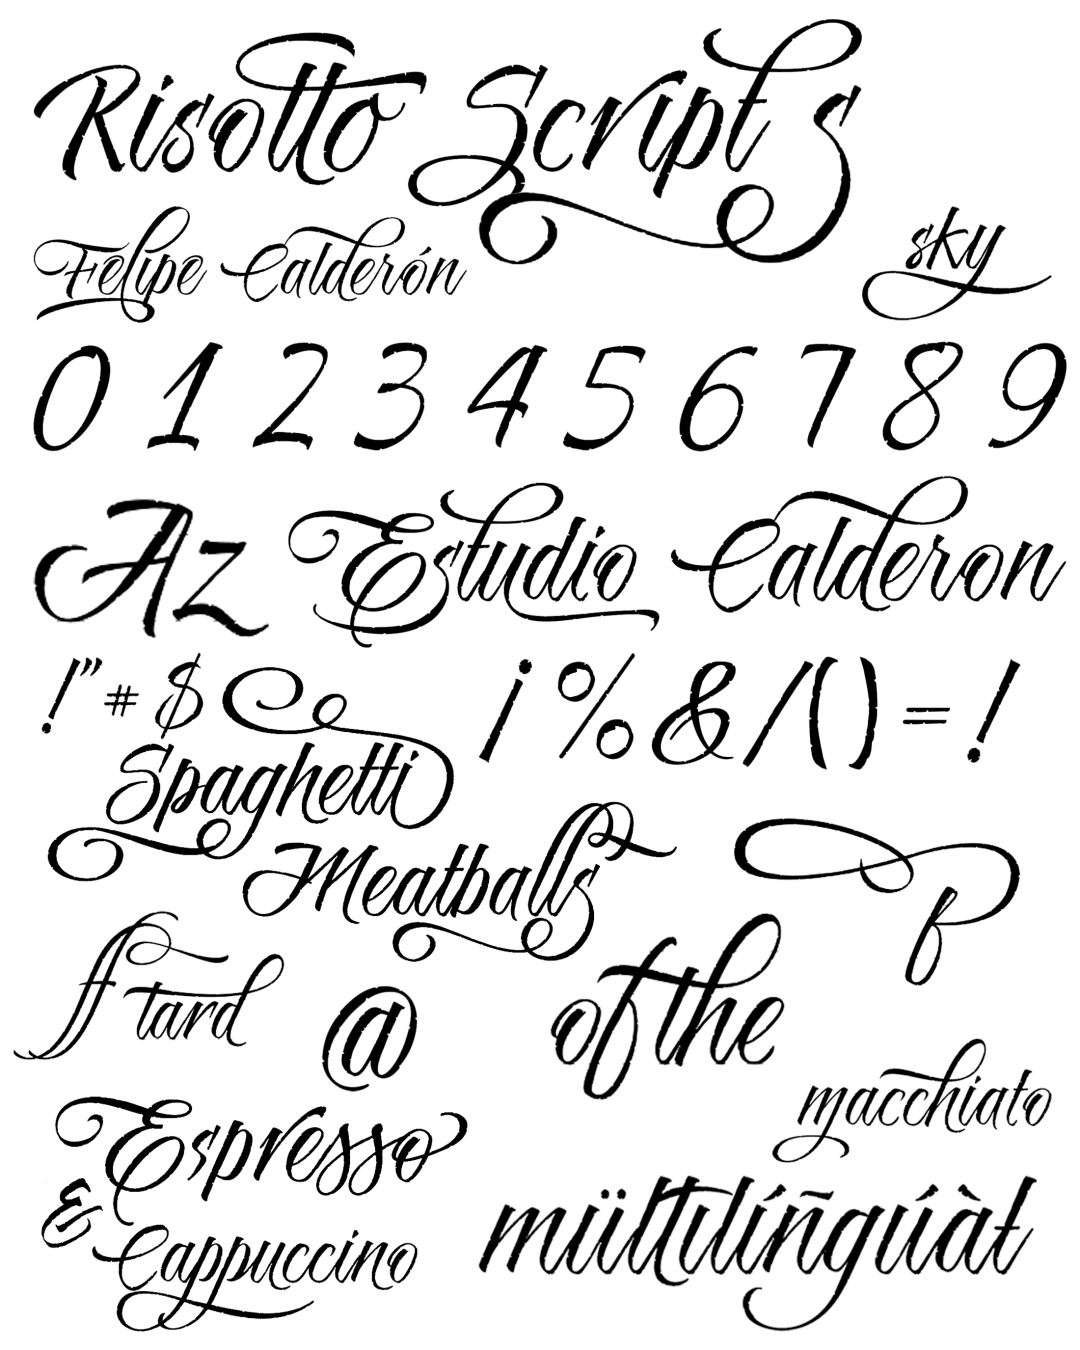 Risotto Script s
Felipe Calderón
sky
0 1 2 3 4 5 6 7 8 9
Az Estudio Calderon
!" # $ ¡ % & / ( ) = !
Spaghetti
Meatballs
f
ff tard @ of the
macchiato
Espresso
& Cappuccino
mültilíñgúàt